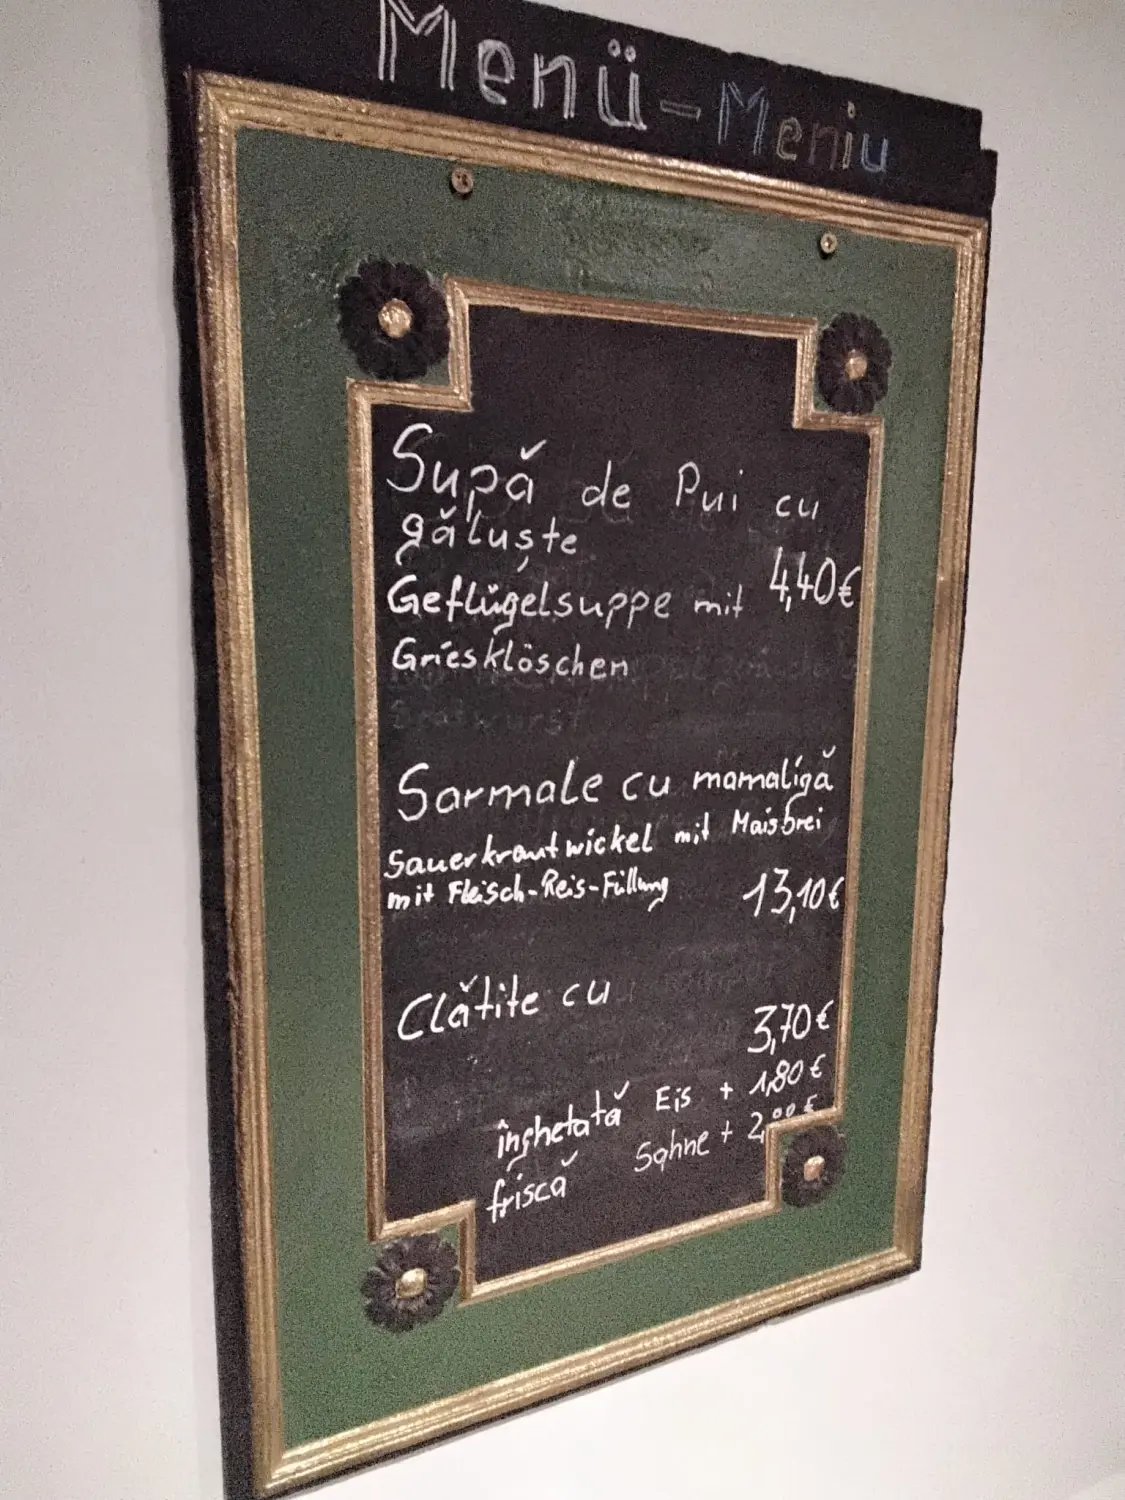 Menü-Meniu
Supă de Pui cu
găluște
4,40€
Geflügelsuppe mit
Griesklöschen
Sarmale cu mamaligă
Sauerkrautwickel mit Maisbrei
mit Fleisch-Reis-Füllung 13,10€
Clătite cu
3,70€
înghetată Eis + 1,80€
friscă Sahne + 2,00€